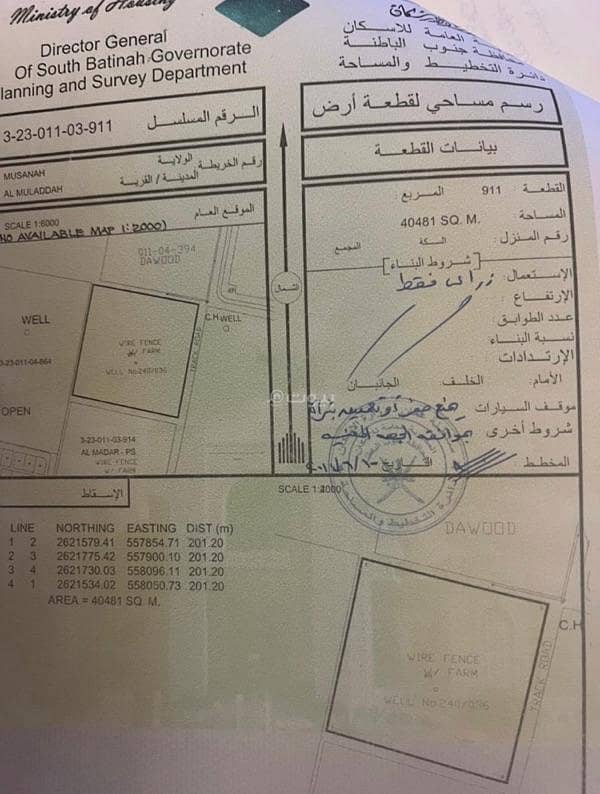 Ministry of Housing
Director General
Of South Batinah Governorate
lanning and Survey Department
العامة للاسكان
جنوب الباطنة
دائرة التخطيط والمساحة
الرقم المسلسل 3-23-011-03-911
رسم مساحي لقطعة أرض
بيانات القطعة
الولاية MUSANAH
رقم الخريطة
المدينة / القرية AL MULADDAH
الموقع العام
SCALE 1:6000
NO AVAILABLE MAP 1:2000)
القطعة 911 المربع
المساحة 40481 SQ. M.
رقم المنزل: السكة المجمع
[شروط البناء]
الإستعمال: زراعي فقط
الإرتفاع:
عدد الطوابق:
نسبة البناء
الإرتدادات
الأمام: الخلف الجانبان
موقف السيارات
شروط أخرى
المخطط التاريخ
الشمال
911-04-394
DAWOOD
WELL
C.H
WELL
WIRE FENCE
W/ FARM
WELL No 240/036
TRACK ROAD
3-23-011-04-864
OPEN
3-23-011-03-914
AL MADAR - PS
WIRE FENCE
W/ FARM
الإسقاط
SCALE 1:4000
LINE NORTHING EASTING DIST (m)
1 2 2621579.41 557854.71 201.20
2 3 2621775.42 557900.10 201.20
3 4 2621730.03 558096.11 201.20
4 1 2621534.02 558050.73 201.20
AREA = 40481 SQ. M.
DAWOOD
C.H
WIRE FENCE
W/ FARM
WELL No 240/036
TRACK ROAD
بيوت@